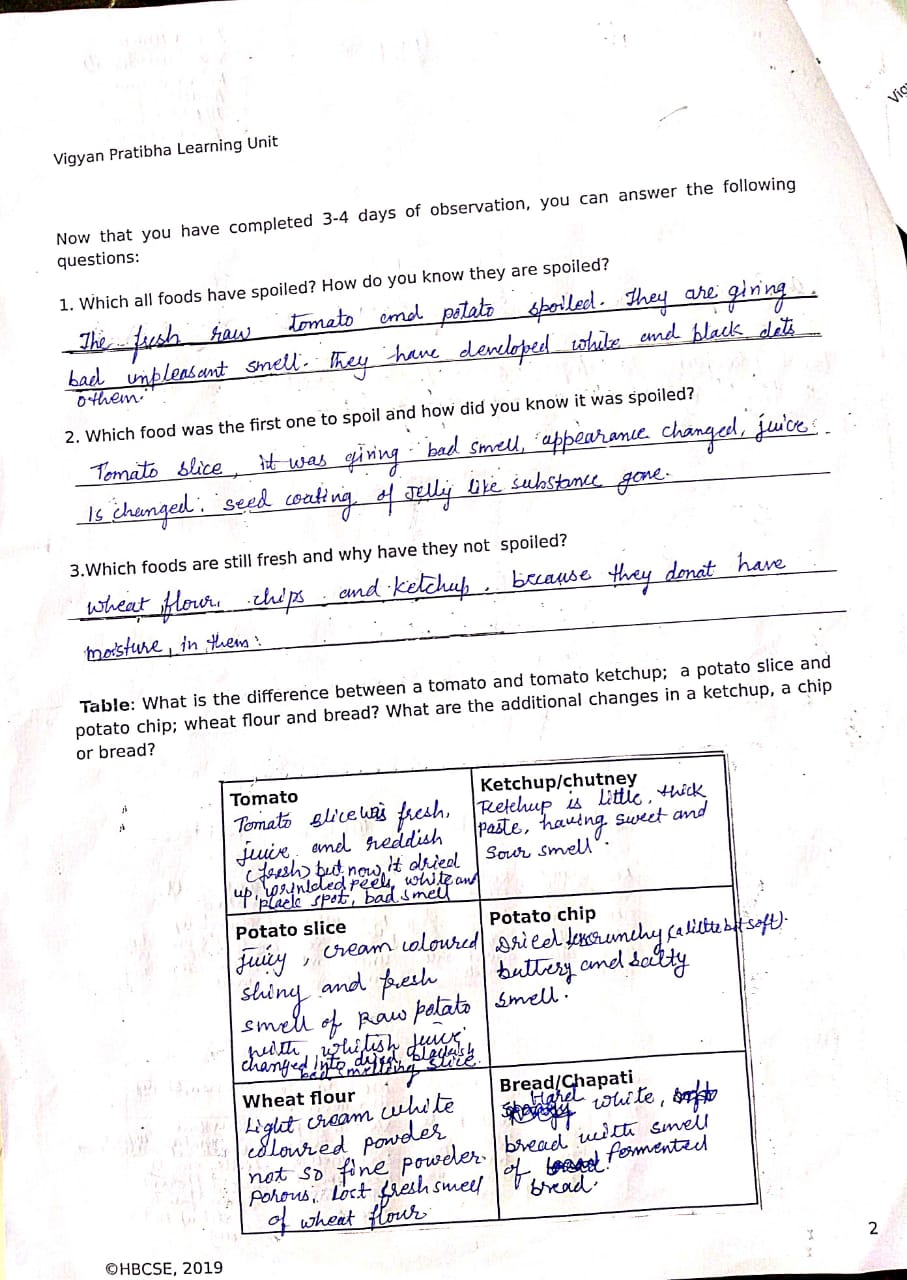 Vig
Vigyan Pratibha Learning Unit
Now that you have completed 3-4 days of observation, you can answer the following
questions:
1. Which all foods have spoiled? How do you know they are spoiled?
The fresh raw tomato and potato spoiled. They are giving
bad unpleasant smell. They have developed white and black dots
othem.
2. Which food was the first one to spoil and how did you know it was spoiled?
Tomato slice, it was giving bad smell, appearance changed, juice
Is changed. seed coating of Jelly like substance gone.
3.Which foods are still fresh and why have they not spoiled?
wheat flour, chips and ketchup. because they donat have
moisture, in them.
Table: What is the difference between a tomato and tomato ketchup; a potato slice and
potato chip; wheat flour and bread? What are the additional changes in a ketchup, a chip
or bread?
Tomato
Tomato slice was fresh,
juice and reddish
(fresh) but now it dried
up, wrinkled peels, white and
black spot, bad smell
Ketchup/chutney
Ketchup is little, thick
paste, having sweet and
Sour smell.
Potato slice
juicy, cream coloured
shiny and fresh
smell of Raw potato
with whitish juice
changed into dried blackish
bad smelling slice.
Potato chip
Dried crunchy (a little bit soft).
buttery and salty
smell.
Wheat flour
Light cream white
coloured powder
not so fine powder.
Porous, lost fresh smell
of wheat flour
Bread/Chapati
Hard white,
bread with smell
of fermented
bread.
2
©HBCSE, 2019